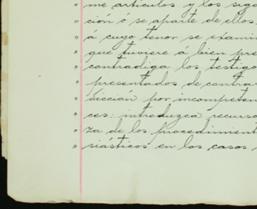 me articulos y los sigu
ción ó se aparte de ellos,
á cuyo tenor se exami
que tuviere á bien pre
contradiga los testigo
presentados de contrar
dicción por incompeten
ces: introduzca recurso
za de los procedimient
siásticos en los casos